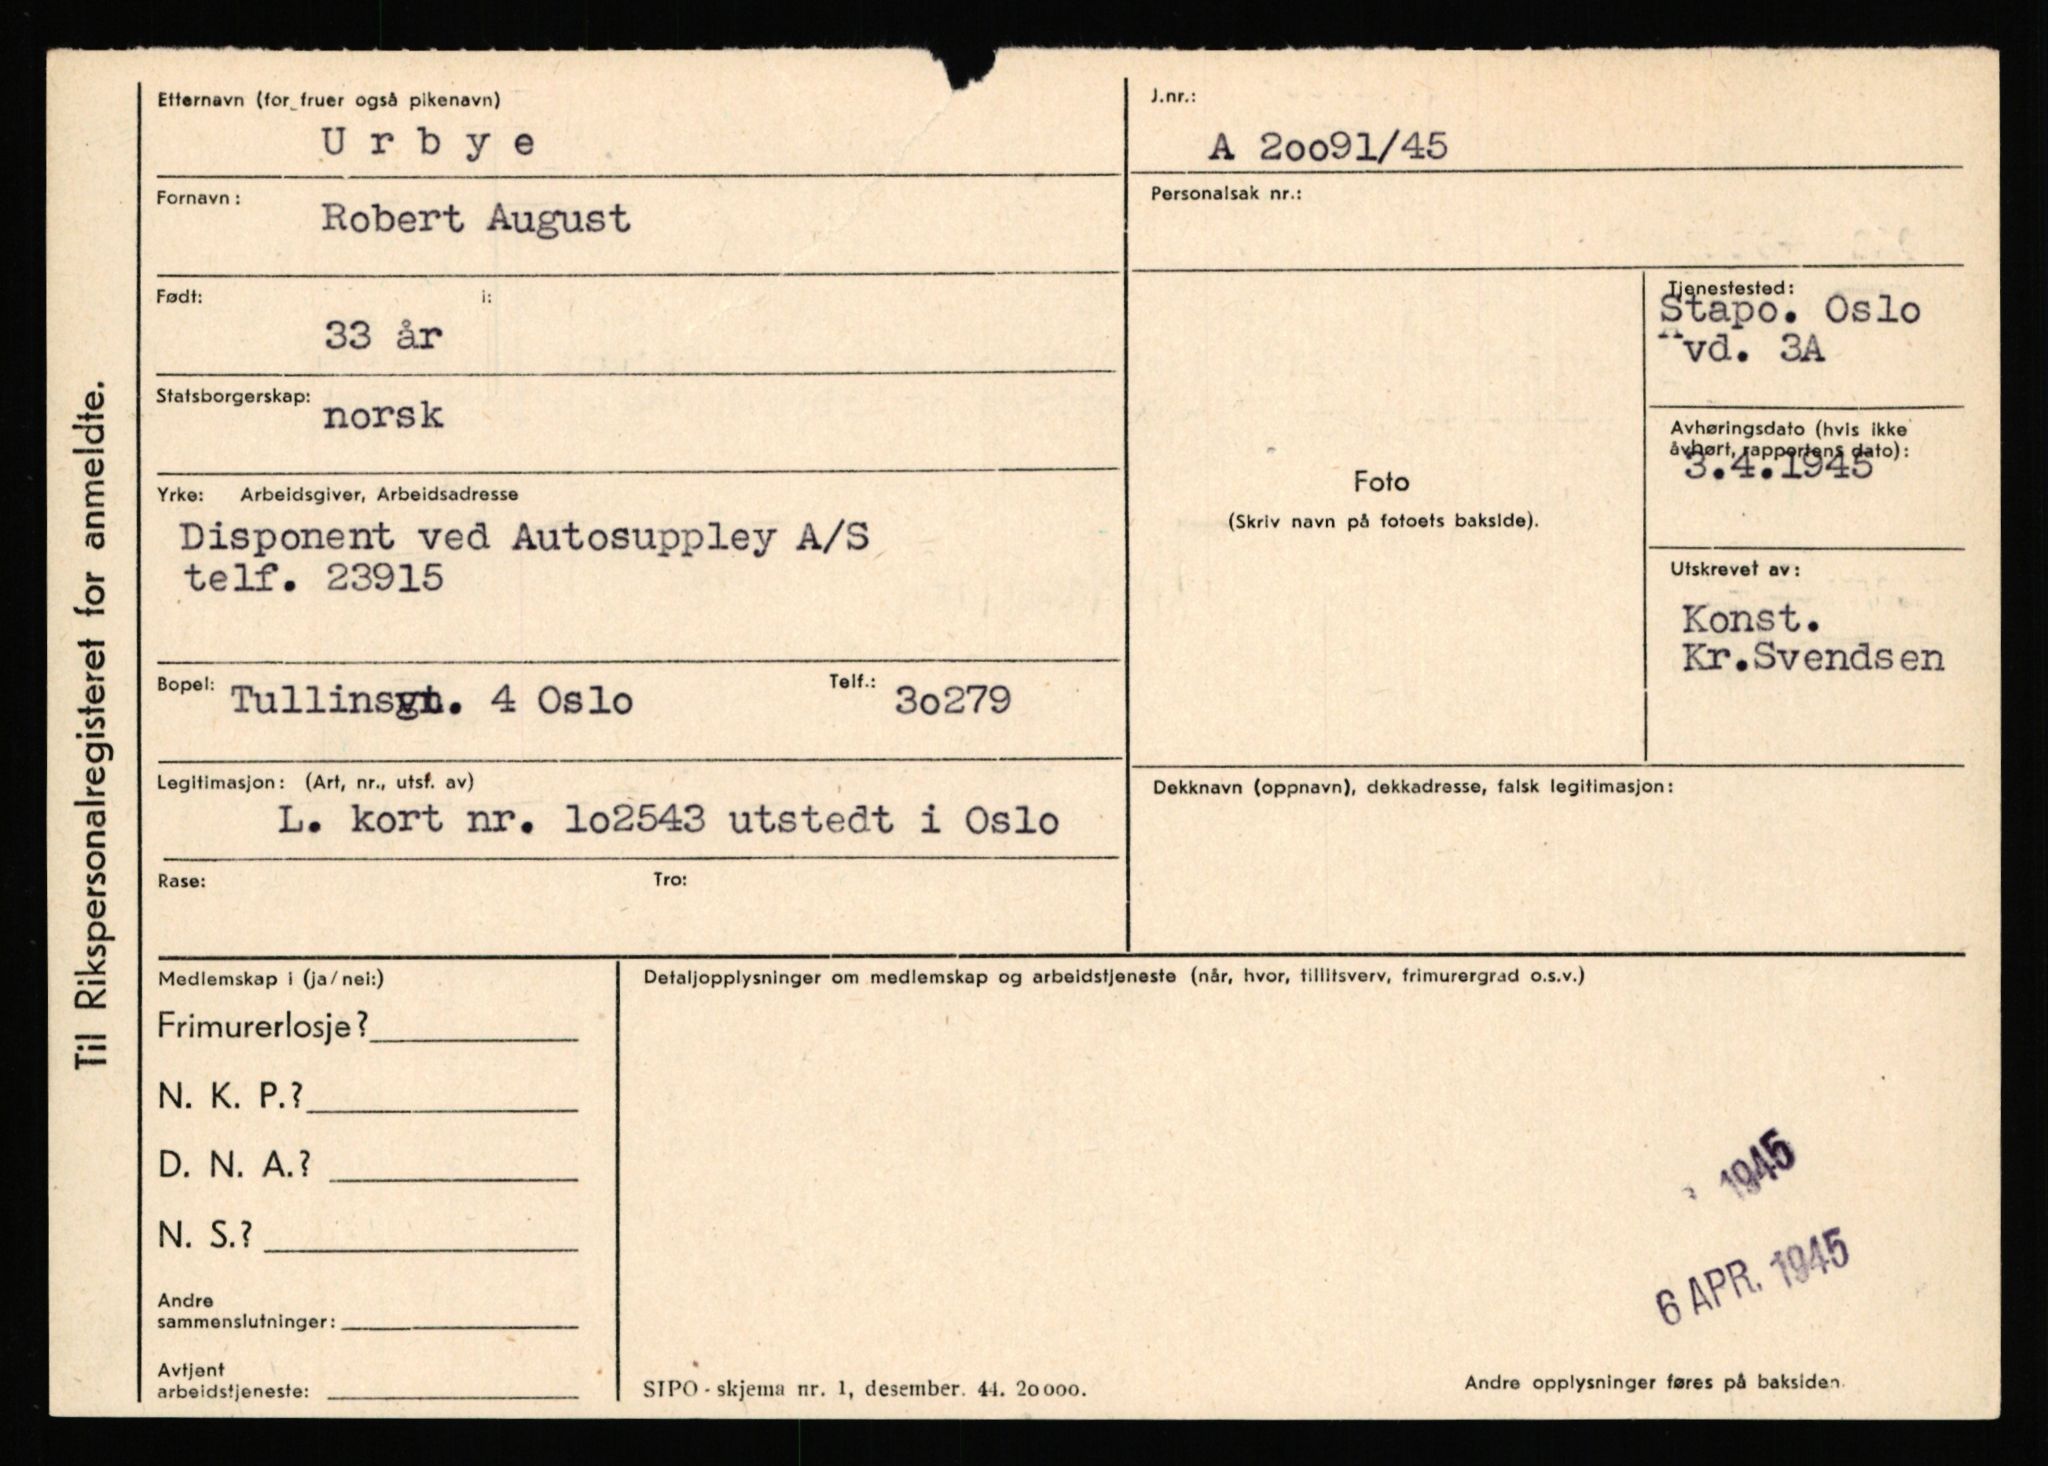 Til Rikspersonalregisteret for anmeldte.
Etternavn (for fruer også pikenavn)
Urbye
Fornavn:
Robert August
Født: i:
33 år
Statsborgerskap:
norsk
Yrke: Arbeidsgiver, Arbeidsadresse
Disponent ved Autosuppley A/S
telf. 23915
Bopel: Tullinsgt. 4 Oslo Telf.: 3o279
Legitimasjon: (Art, nr., utsf. av)
L. kort nr. 1o2543 utstedt i Oslo
Rase: Tro:
J.nr.:
A 2oo91/45
Personalsak nr.:
Foto
(Skriv navn på fotoets bakside).
Tjenestested:
Stapo. Oslo
Avd. 3A
Avhøringsdato (hvis ikke
avhørt, rapportens dato):
3.4.1945
Utskrevet av:
Konst.
Kr.Svendsen
Dekknavn (oppnavn), dekkadresse, falsk legitimasjon:
Medlemskap i (ja/nei:)
Frimurerlosje?
N. K. P.?
D. N. A.?
N. S.?
Andre
sammenslutninger:
Avtjent
arbeidstjeneste:
Detaljopplysninger om medlemskap og arbeidstjeneste (når, hvor, tillitsverv, frimurergrad o.s.v.)
1945
6 APR. 1945
SIPO-skjema nr. 1, desember. 44. 20000.
Andre opplysninger føres på baksiden.